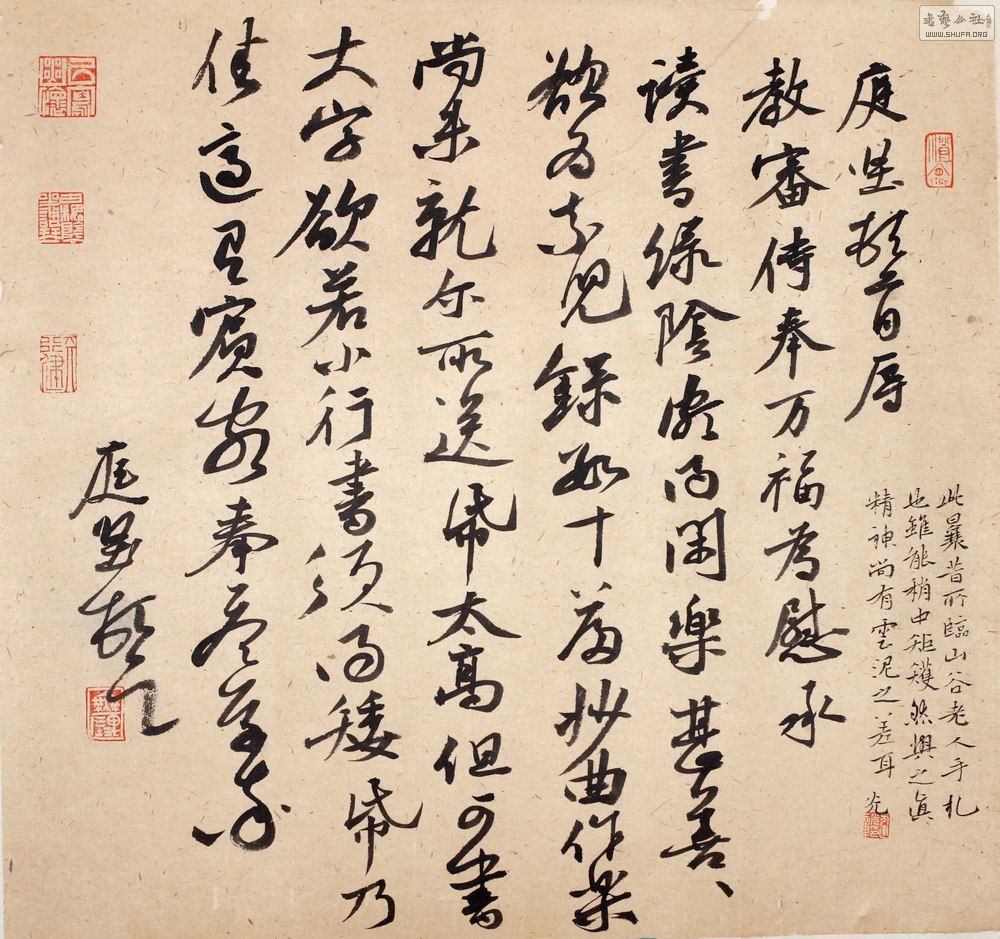 庭堅頓首辱
教審侍奉万福為慰承
讀書緑陰頗得閑樂甚善、、
欲为索兒録數十篇妙曲作樂
尚未就尔所送帋太高但可書
大字欲若小行書須得矮帋乃
佳適有賓客奉答草率
庭堅頓首
此曩昔所臨山谷老人手札
也雖能稍中矩矱然與之真
精神尚有雲泥之差耳 光
書藝公社
WWW.SHUFA.ORG